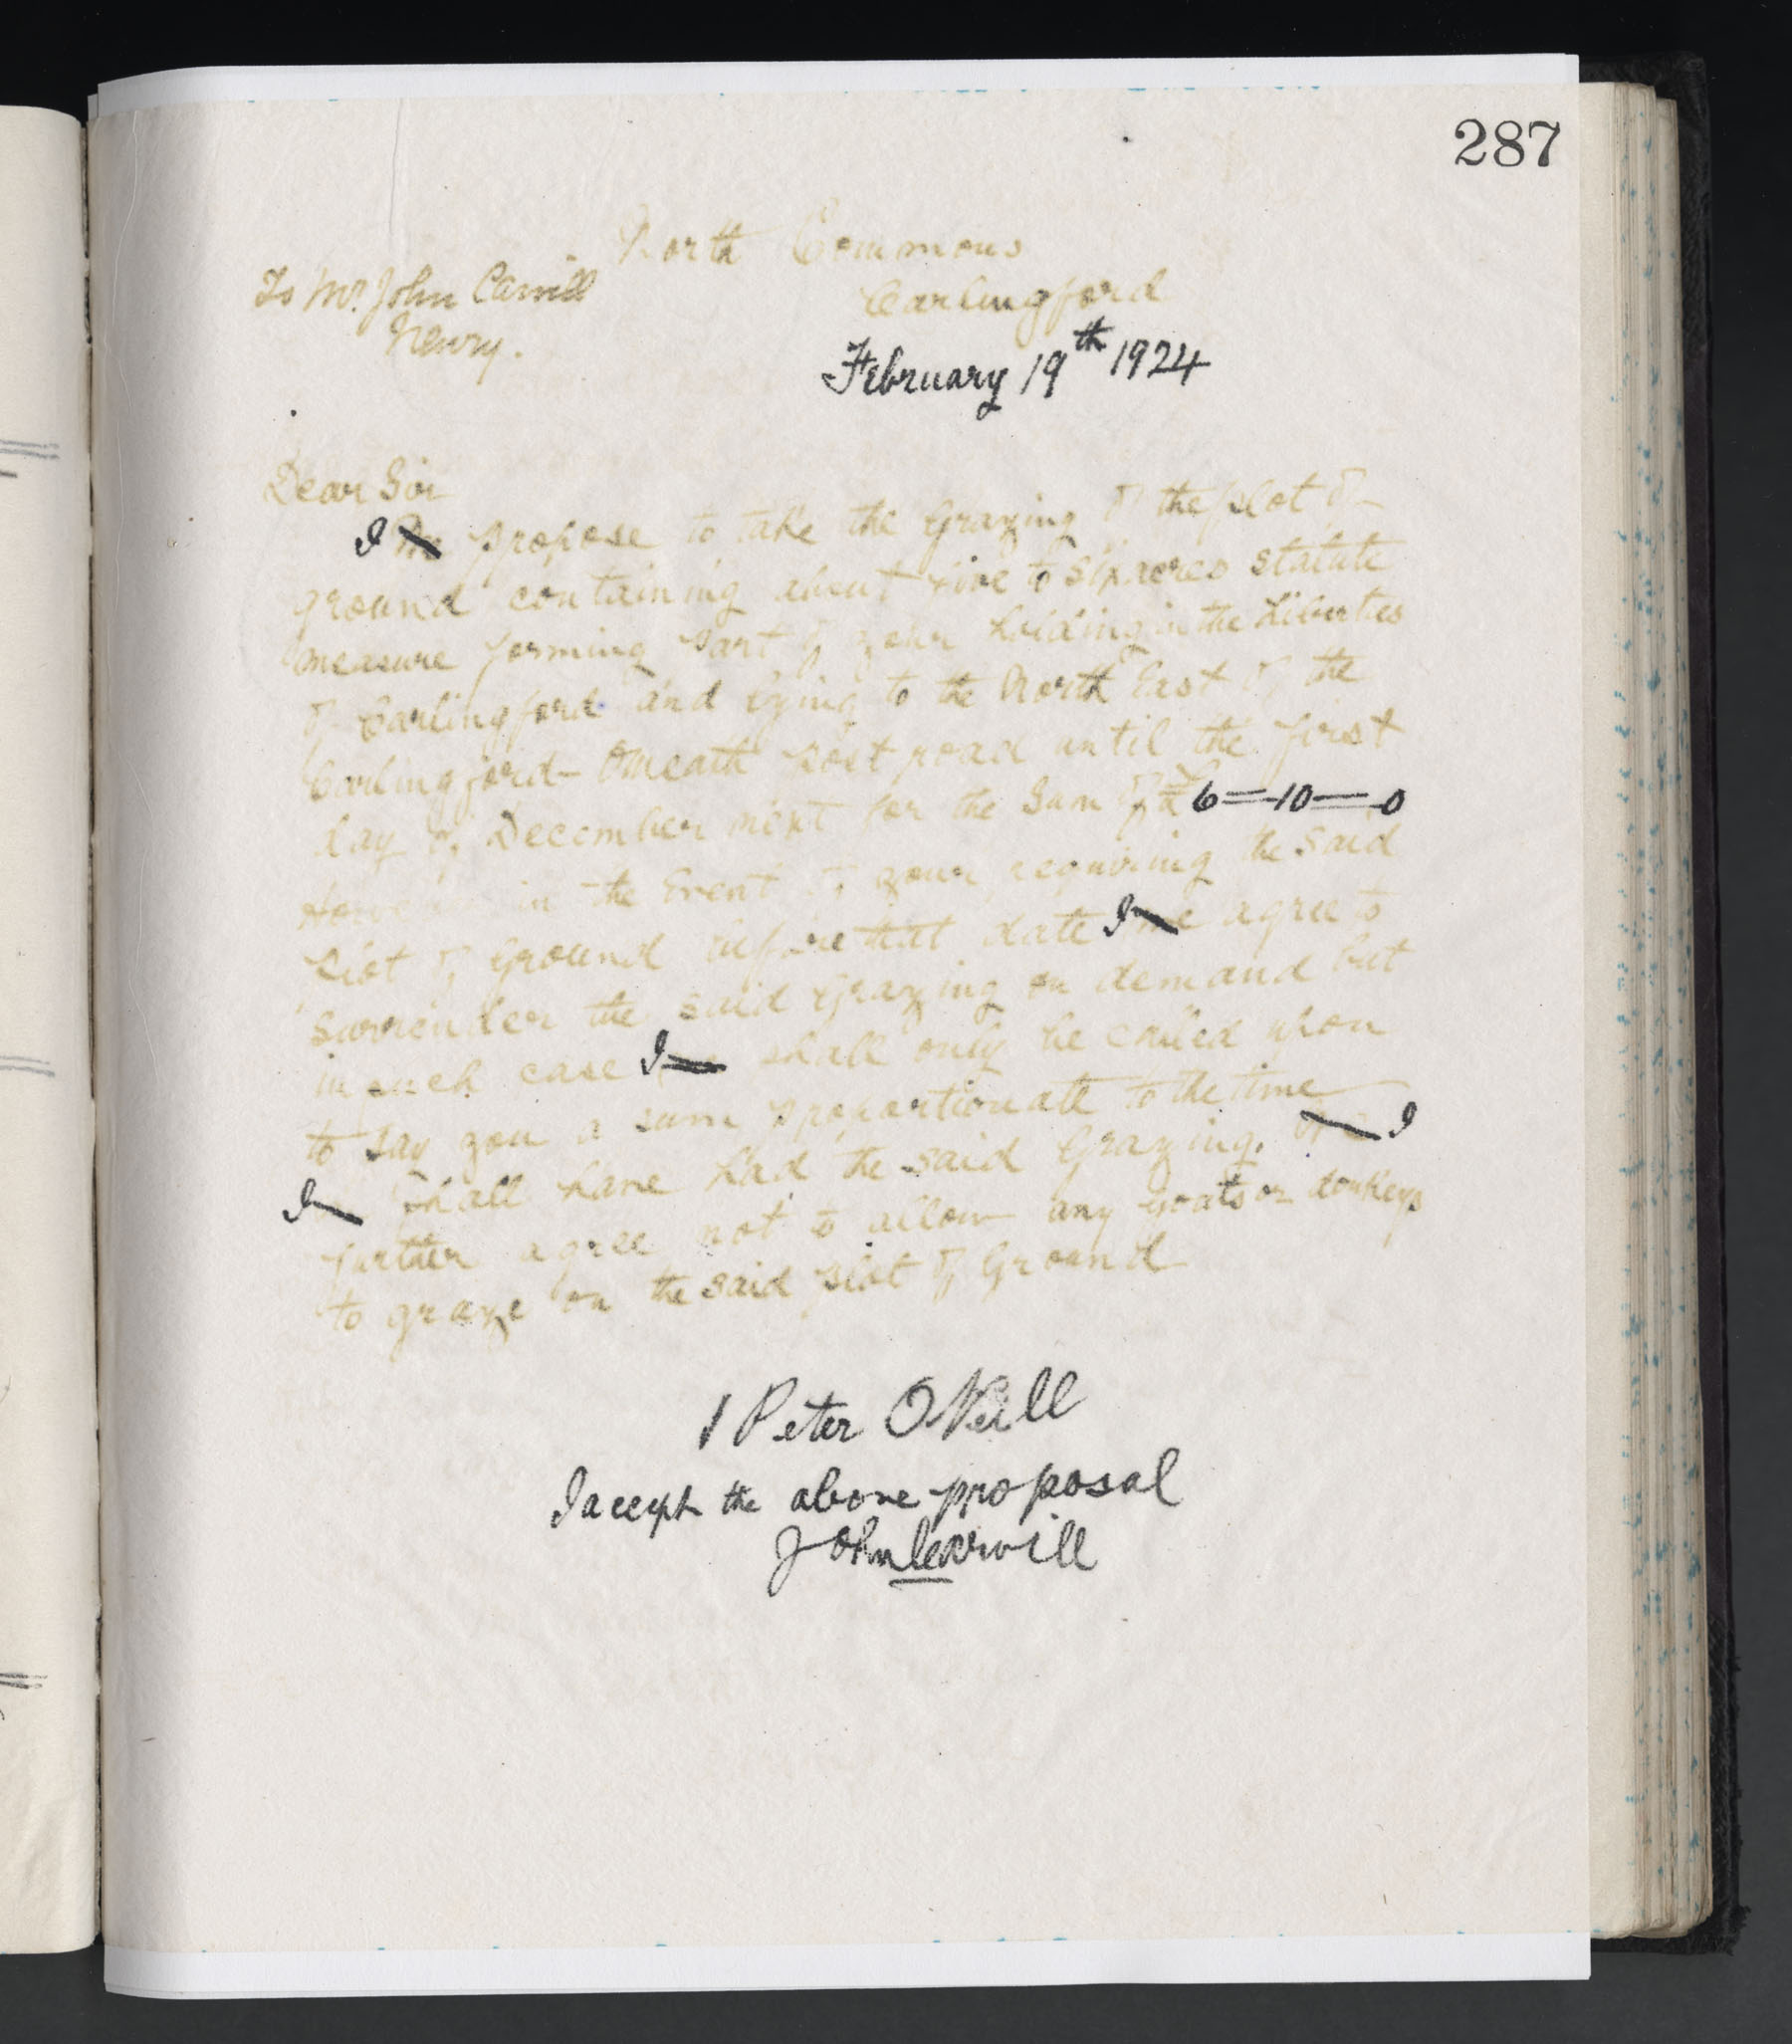 287
North Commons
To Mr. John Carvill
Carlingford
Newry.
February 19th 1924
Dear Sir
I We propose to take the Grazing of the plot of
ground containing about five to six acres statute
measure forming part of your holding in the Liberties
of Carlingford and lying to the North East of the
Carlingford - Omeath post road until the first
day of December next for the Sum of £6=10—0
However in the Event of your requiring the said
plot of Ground before that date I we agree to
surrender the said Grazing on demand but
in such case I shall only be called upon
to pay you a sum proportionate to the time
I shall have had the said Grazing. We I
further agree not to allow any Goats or donkeys
to graze on the said plot of Ground
Peter O'Neill
I accept the above proposal
John Carvill